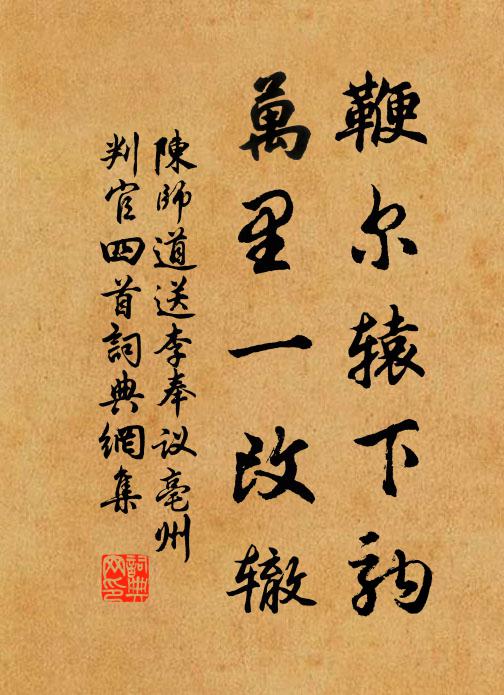 鞭尔辕下駒
萬里一改辙
陳師道送李奉议亳州
判官四首詞典網集
詞典网印